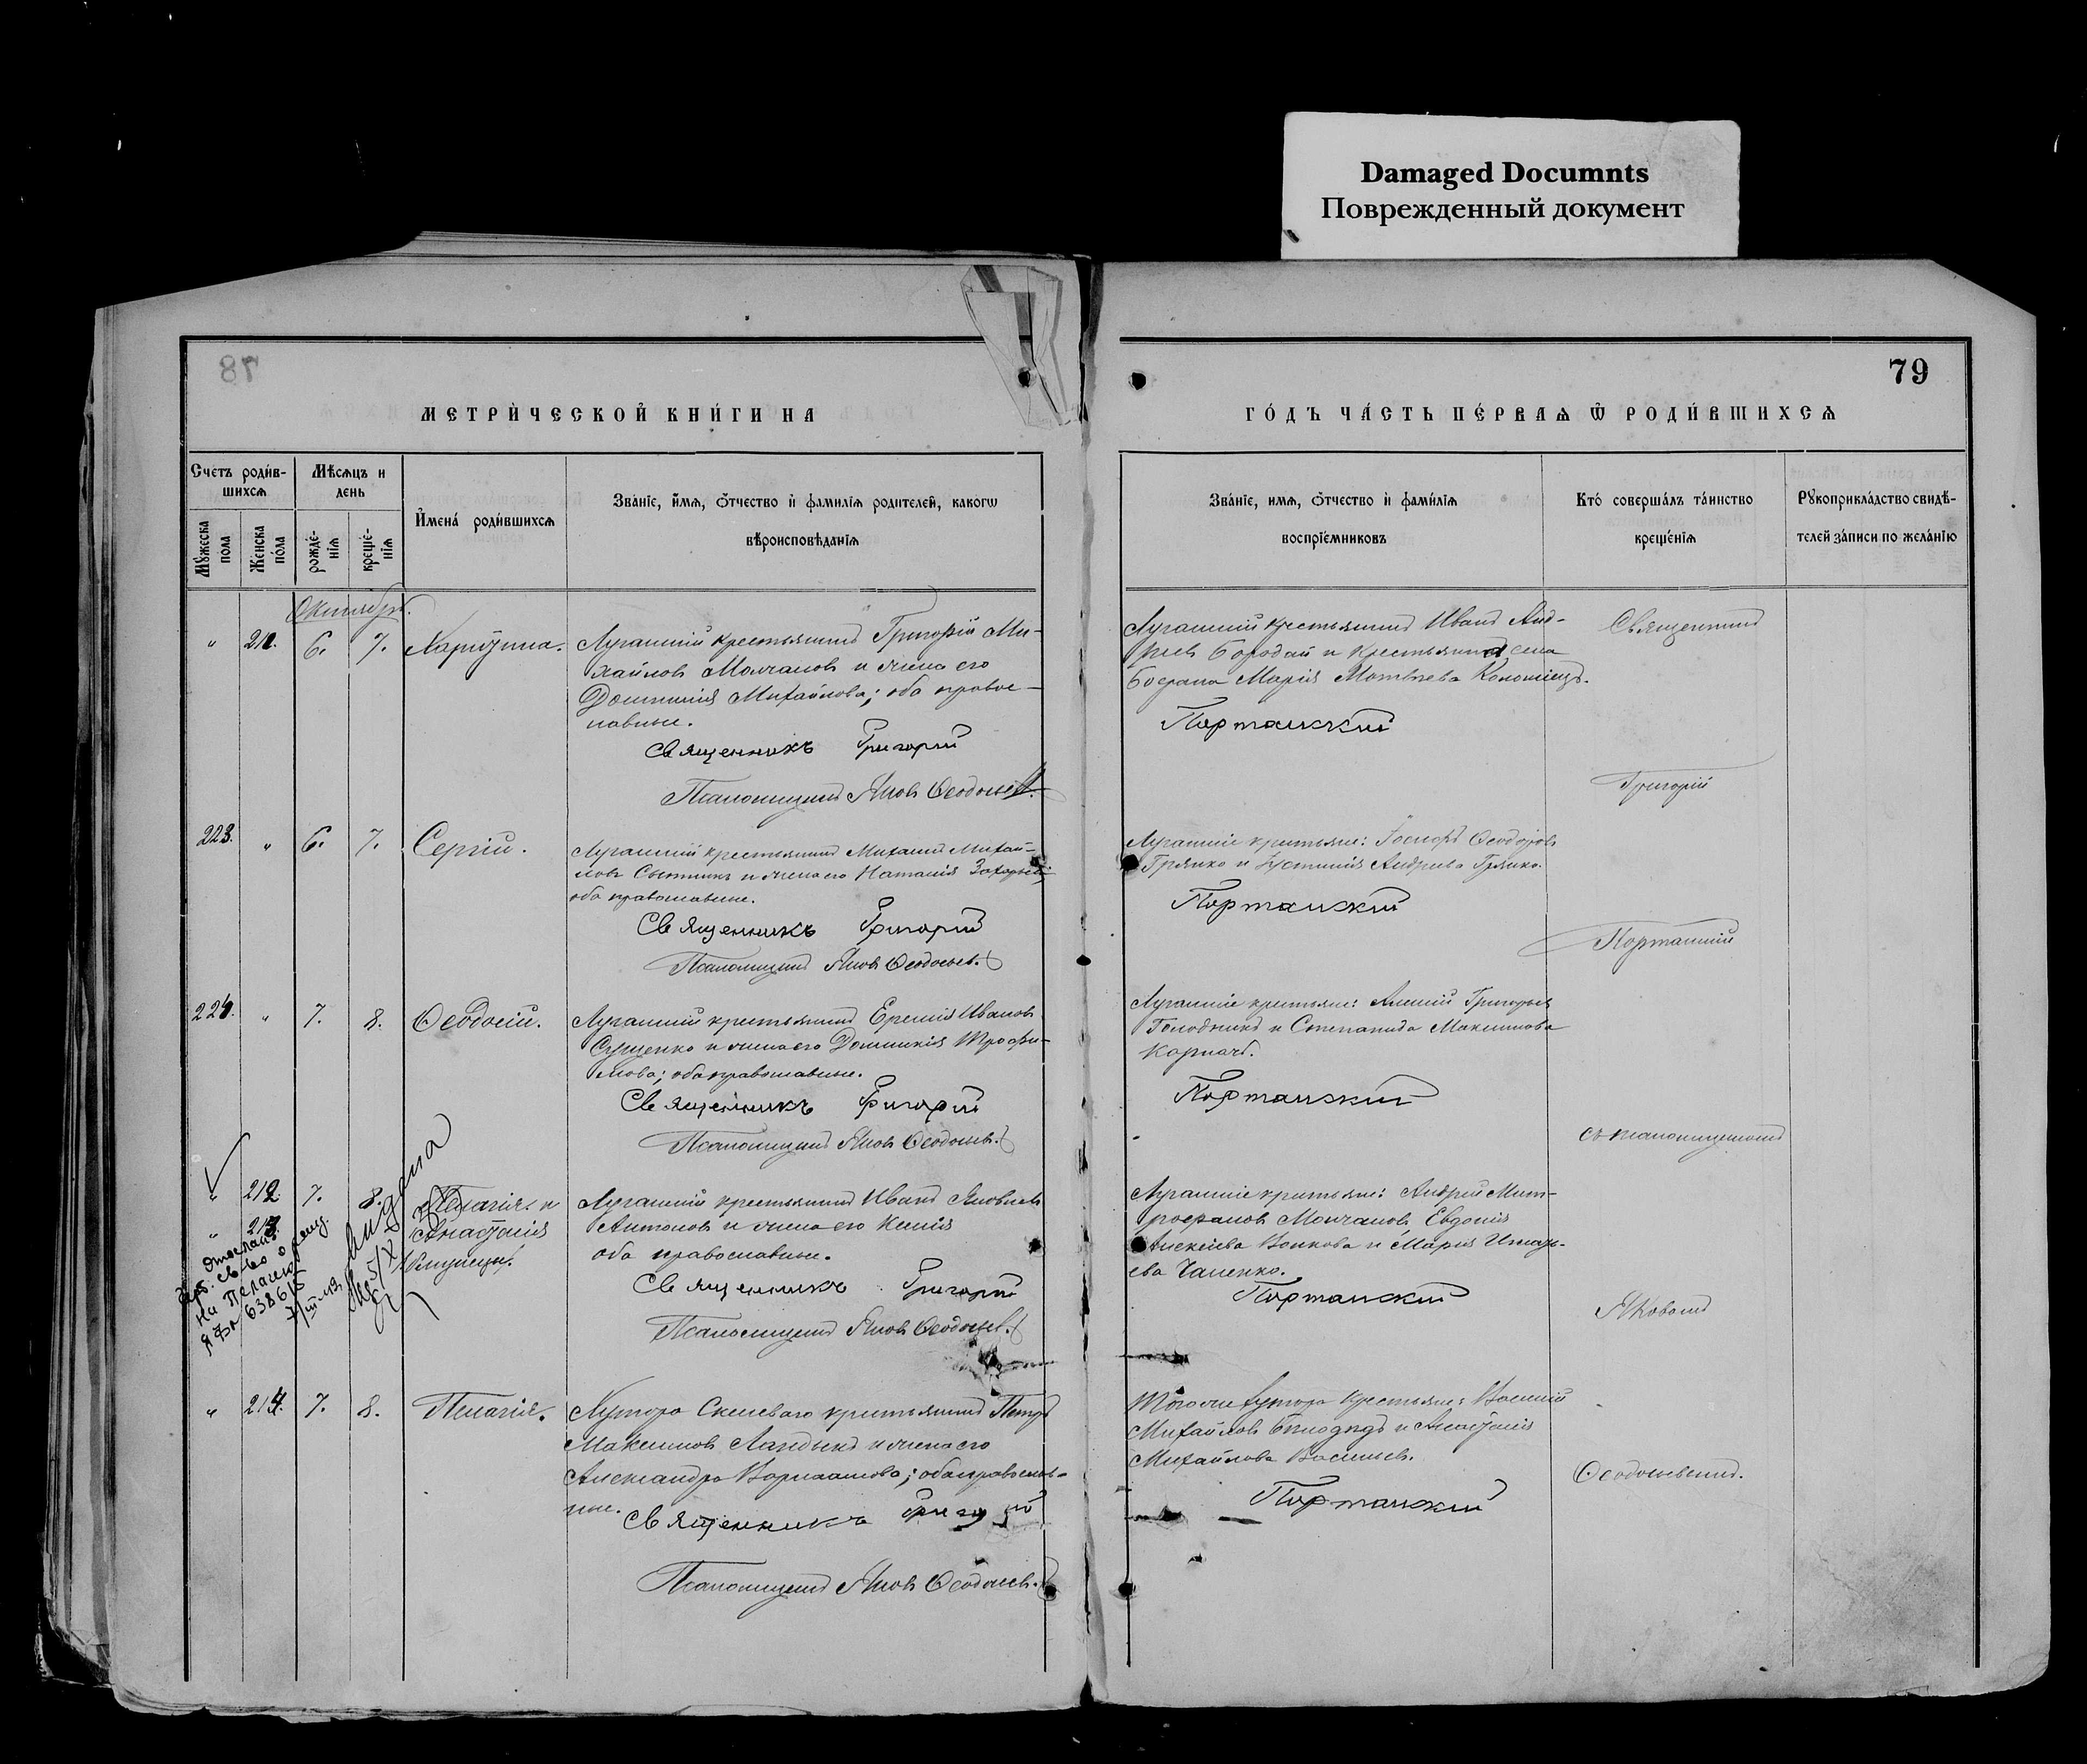 Damaged Documnts
Поврежденный документ
78
МЕТРИЧЕСКОЙ КНИГИ НА
Счетъ родив-
шихся
Мѣсяцъ и
день
Мужеска
пола
Женска
пола
рожде-
нія
креще-
нія
Имена родившихся
Званіе, имя, отчество и фамилія родителей, какогѡ
вѣроисповѣданія
Октябрь.
" 211. 6. 7. Харитина.
Луганскій крестьянинъ Григорій Ми-
хайловъ Молчановъ и жена его
Домникія Михайлова; оба правос-
лавные.
Священникъ Григорій
Псаломщикъ Яковъ Ѳеодосьев.
223. " 6. 7. Сергій.
Луганскій крестьянинъ Михаилъ Михай-
ловъ Сытникъ и жена его Наталія Захарьева;
оба православные.
Священникъ Григорій
Псаломщикъ Яковъ Ѳеодосьев.
224. " 7. 8. Ѳеодосій.
Луганскій крестьянинъ Еремія Ивановъ
Сущенко и жена его Домникія Трофи-
мова; оба православные.
Священникъ Григорій
Псаломщикъ Яковъ Ѳеодосьев.
" 212. 7. 8. Пелагія и
" 213. Анастасія
близнецы.
выдана
отослан
на Пелагию
638615
Луганскій крестьянинъ Иванъ Яковлевъ
Антоновъ и жена его Ксенія
оба православные.
Священникъ Григорій
Псаломщикъ Яковъ Ѳеодосьев.
" 214. 7. 8. Пелагія.
Хутора Скелеваго крестьянинъ Петръ
Максимовъ Ландыкъ и жена его
Александра Варлаамова; оба православ-
ные.
Священникъ Григорій
Псаломщикъ Яковъ Ѳеодосьев.
79
ГОДЪ ЧАСТЬ ПЕРВАЯ Ѡ РОДИВШИХСЯ
Званіе, имя, отчество и фамилія
воспріемниковъ
Кто совершалъ таинство
крещенія
Рукоприкладство свидѣ-
телей записи по желанію
Луганскій крестьянинъ Иванъ Анд-
реевъ Бородай и крестьянка села
Марія Матвѣева Коломіецъ.
Портанскій
Священникъ
Григорій
Луганскіе крестьяне: Ѳеодоровъ
Грянко и Іустинія Андреева Грянко.
Портанскій
Портанскій
Луганскіе крестьяне: Алексій Григорьев
Голодникъ и Степанида Максимова
Карпачъ.
Портанскій
съ псаломщикомъ
Луганскіе крестьяне: Андрей Мит-
рофановъ Молчановъ, Евдокія
Алексѣева Волкова и Марія Игнать-
ева Чаленко.
Портанскій
Яковомъ
Того же хутора крестьяне: Василій
Михайловъ и Анастасія
Михайлова Васильев.
Портанскій
Ѳеодосьевымъ.